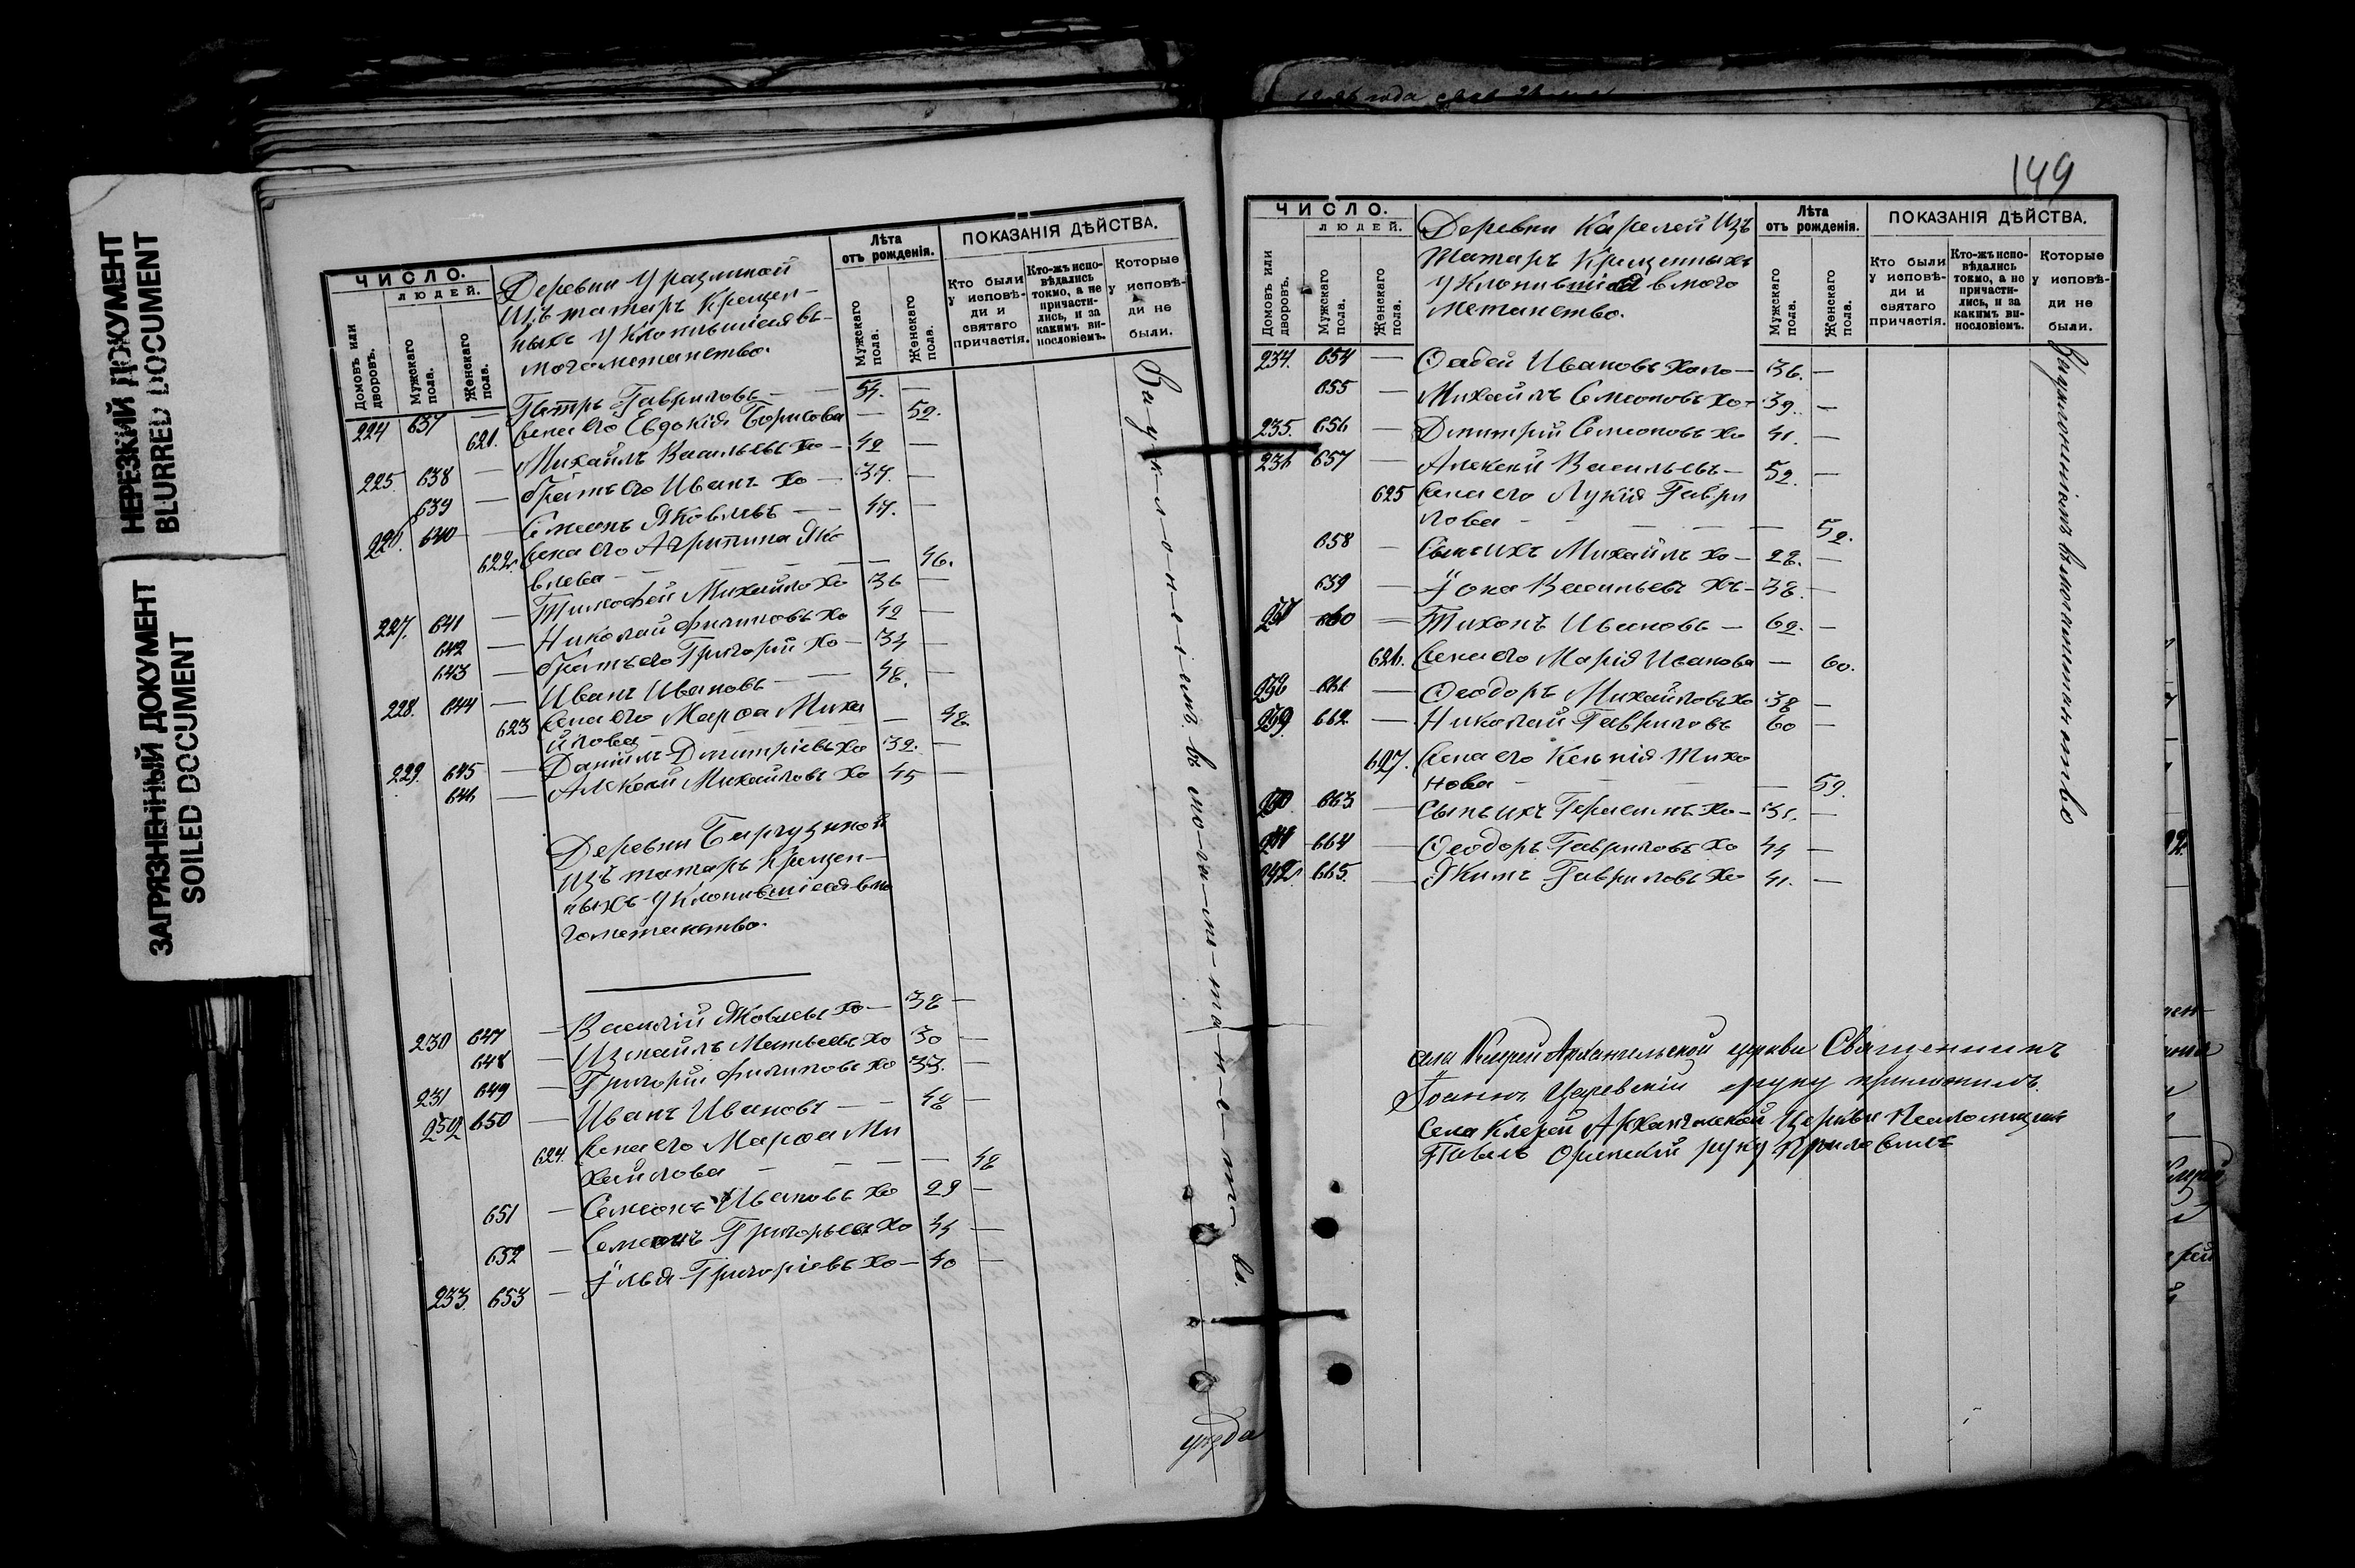 НЕРЕЗКИЙ ДОКУМЕНТ
BLURRED DOCUMENT
ЗАГРЯЗНЕННЫЙ ДОКУМЕНТ
SOILED DOCUMENT
ЧИСЛО.
ЛЮДЕЙ.
Домовъ или дворовъ.
Мужскаго пола.
Женскаго пола.
Деревни Уразлиной
Изъ татаръ Крещен-
ныхъ Уклонившiеся въ
могометанство.
Лѣта отъ рожденія.
Мужскаго пола.
Женскаго пола.
ПОКАЗАНІЯ ДѢЙСТВА.
Кто были у исповѣди и святаго причастія.
Кто-жъ исповѣдались токмо, а не причастились, и за какимъ винословіемъ.
Которые у исповѣди не были.
224 637 — Петръ Гавриловъ — 54. —
621. Жена его Евдокія Борисова — 52.
225. 638 — Михаилъ Васильевъ Хо — 42 —
639 — братъ его Иванъ Хо — 37. —
226. 640 — Семенъ Яковлевъ — 47. —
622. Жена его Агрипина Яко
влева — 46.
227. 641 — Тимофей Михайло Хо 36 —
642 — Николай Филиповъ Хо 42 —
643 — братъ его Григорій Хо — 34 —
228. 644 — Иванъ Ивановъ — 48. —
623 Жена его Марѳа Миха
йлова — 48
229. 645 — Даніилъ Дмитріевъ Хо 32. —
646 — Алексѣй Михайловъ Хо 45 —
Деревни Бартузиной
Изъ татаръ Крещен-
ныхъ Уклонившiеся в мо
гометанство.
230 647 — Василій Яковлевъ Хо — 38 —
648 — Измаилъ Матвеевъ Хо 30 —
231 649 — Григорій Филиповъ Хо 33. —
232 650 — Иванъ Ивановъ — 48 —
624. Жена его Марѳа Ми
хайлова — 48
651 — Семенъ Ивановъ Хо 29 —
652 — Семенъ Григорьевъ Хо 44 —
233. 653 — Илья Григоріевъ Хо — 40 —
За уклоненіемъ въ могометанство.
уѣзда
149
ЧИСЛО.
ЛЮДЕЙ.
Домовъ или дворовъ.
Мужскаго пола.
Женскаго пола.
Деревни Карелей Изъ
Татаръ Крещенныхъ
Уклонившiеся в мого
метанство.
Лѣта отъ рожденія.
Мужскаго пола.
Женскаго пола.
ПОКАЗАНІЯ ДѢЙСТВА.
Кто были у исповѣди и святаго причастія.
Кто-жъ исповѣдались токмо, а не причастились, и за какимъ винословіемъ.
Которые у исповѣди не были.
234. 654 — Ѳадей Ивановъ Холо — 36. —
655 — Михаилъ Семеновъ Хо — 39. —
235. 656 — Дмитрій Семеновъ Хо 41. —
236 657 — Алексѣй Васильевъ — 52. —
625 Жена его Лукія Гаври
лова — 52.
658 — Сынъ ихъ Михаилъ Хо — 22. —
659 — Іона Васильевъ Хъ — 38. —
237 660 — Тихонъ Ивановъ — 62. —
626. Жена его Марія Иванова — 60.
238 661 — Ѳеодоръ Михайловъ Хо 38 —
239. 662 — Николай Гавриловъ 60 —
627. Жена его Ксенія Тихо
нова — 59.
240 663 — Сынъ ихъ Герасимъ Хо — 31. —
241 664 — Ѳеодоръ Гавриловъ Хо 44 —
242. 665. — Якимъ Гавриловъ Хо 41. —
За уклоненіемъ в могометанство
села Клерей Архангельской церкви Священникъ
Іоаннъ Царевскій руку приложилъ.
Села Клерей Архангельской Церкви Псаломщикъ
Павелъ руку приложилъ